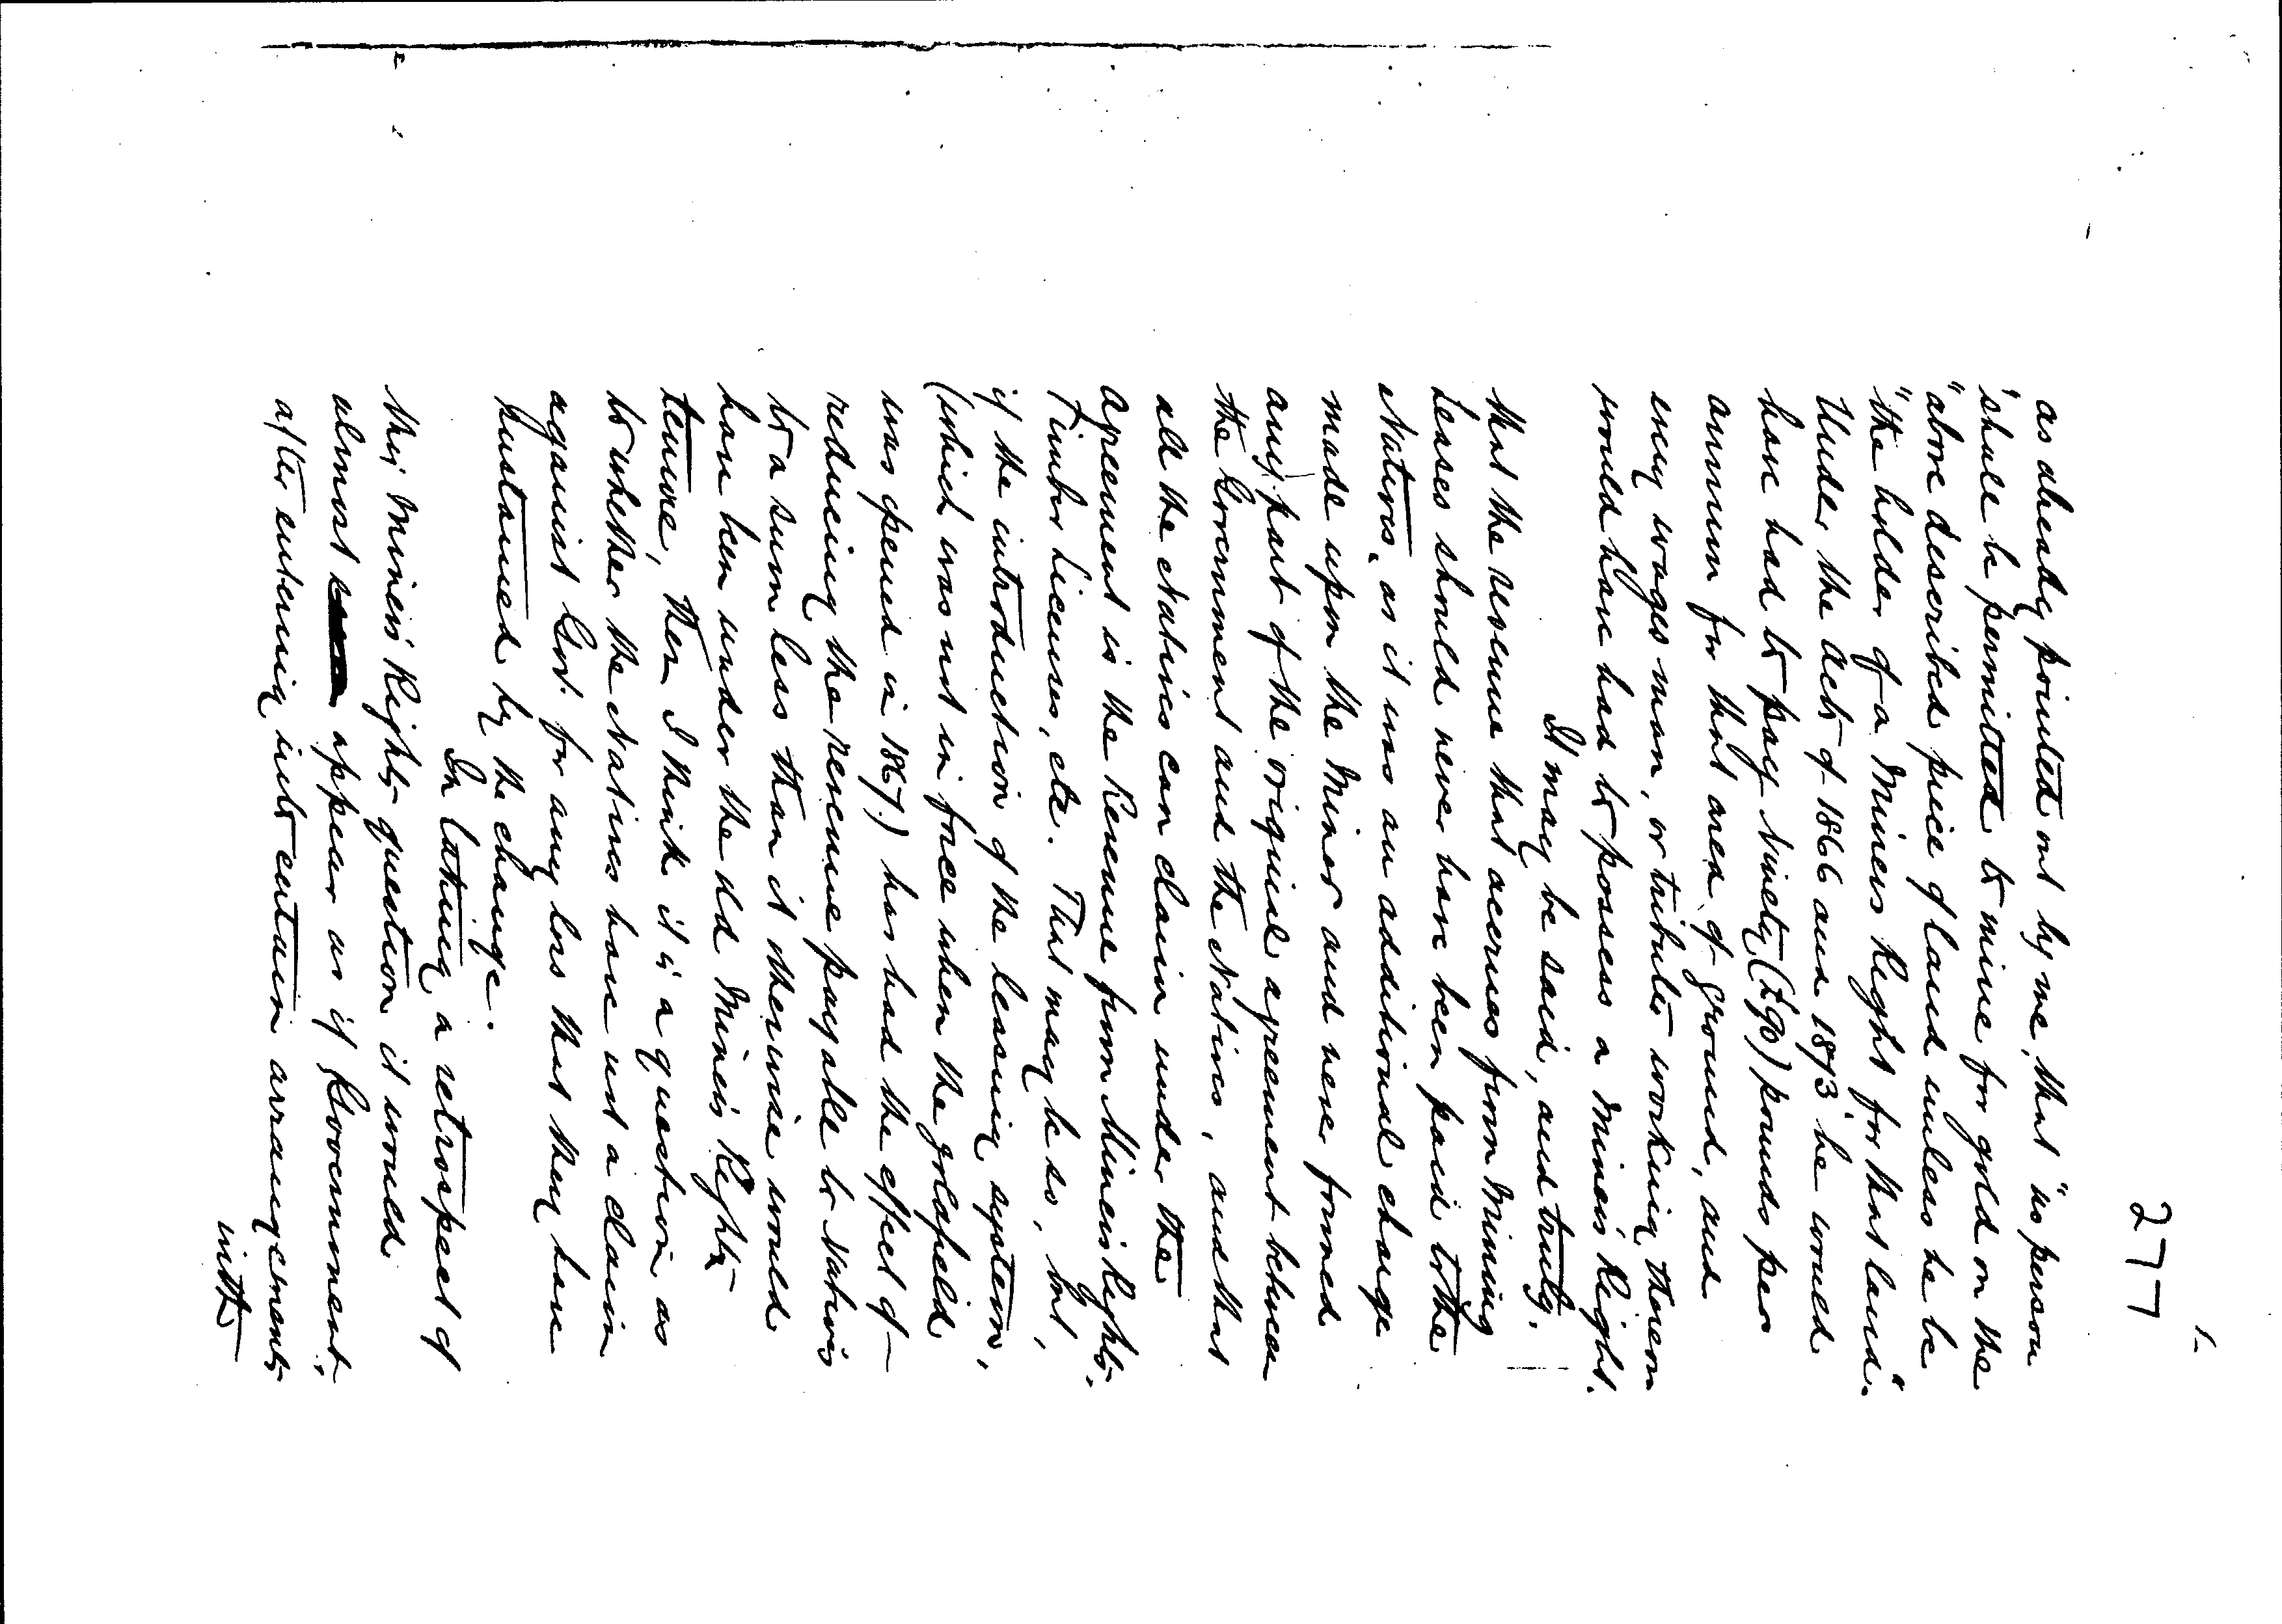 277
as already pointed out by me, that "no person
"shall be permitted to mine for gold on the
"above described piece of land unless he be
"the holder of a Miners Right for that land."
Under the Acts of 1866 and 1873 he would
have had to pay Ninety (£90) pounds per
annum for that area of ground, and
every wages man, or tributer working thereon
would have had to possess a Miner's Right.
It may be said, and truly,
that the revenue that accrues from Mining
Leases should never have been paid to the
Natives, as it was an additional charge
made upon the Miner and never formed
any part of the original agreement between
the Government and the Natives, and that
all the Natives can claim under the
agreement is the Revenue from Miners Rights,
Timber Licenses, etc. That may be so, but,
if the introduction of the leasing system,
(which was not in force when the goldfield
was opened in 1867) has had the effect of
reducing the revenue payable to Natives
to a sum less than it otherwise would
have been under the old Miners Rights
tenure, then I think it is a question as
to whether the Natives have not a claim
against Govt. for any loss that they have
sustained by the change.
In taking a retrospect of
this Miners Rights question it would
almost appear as if Government,
after entering into certain arrangements
with